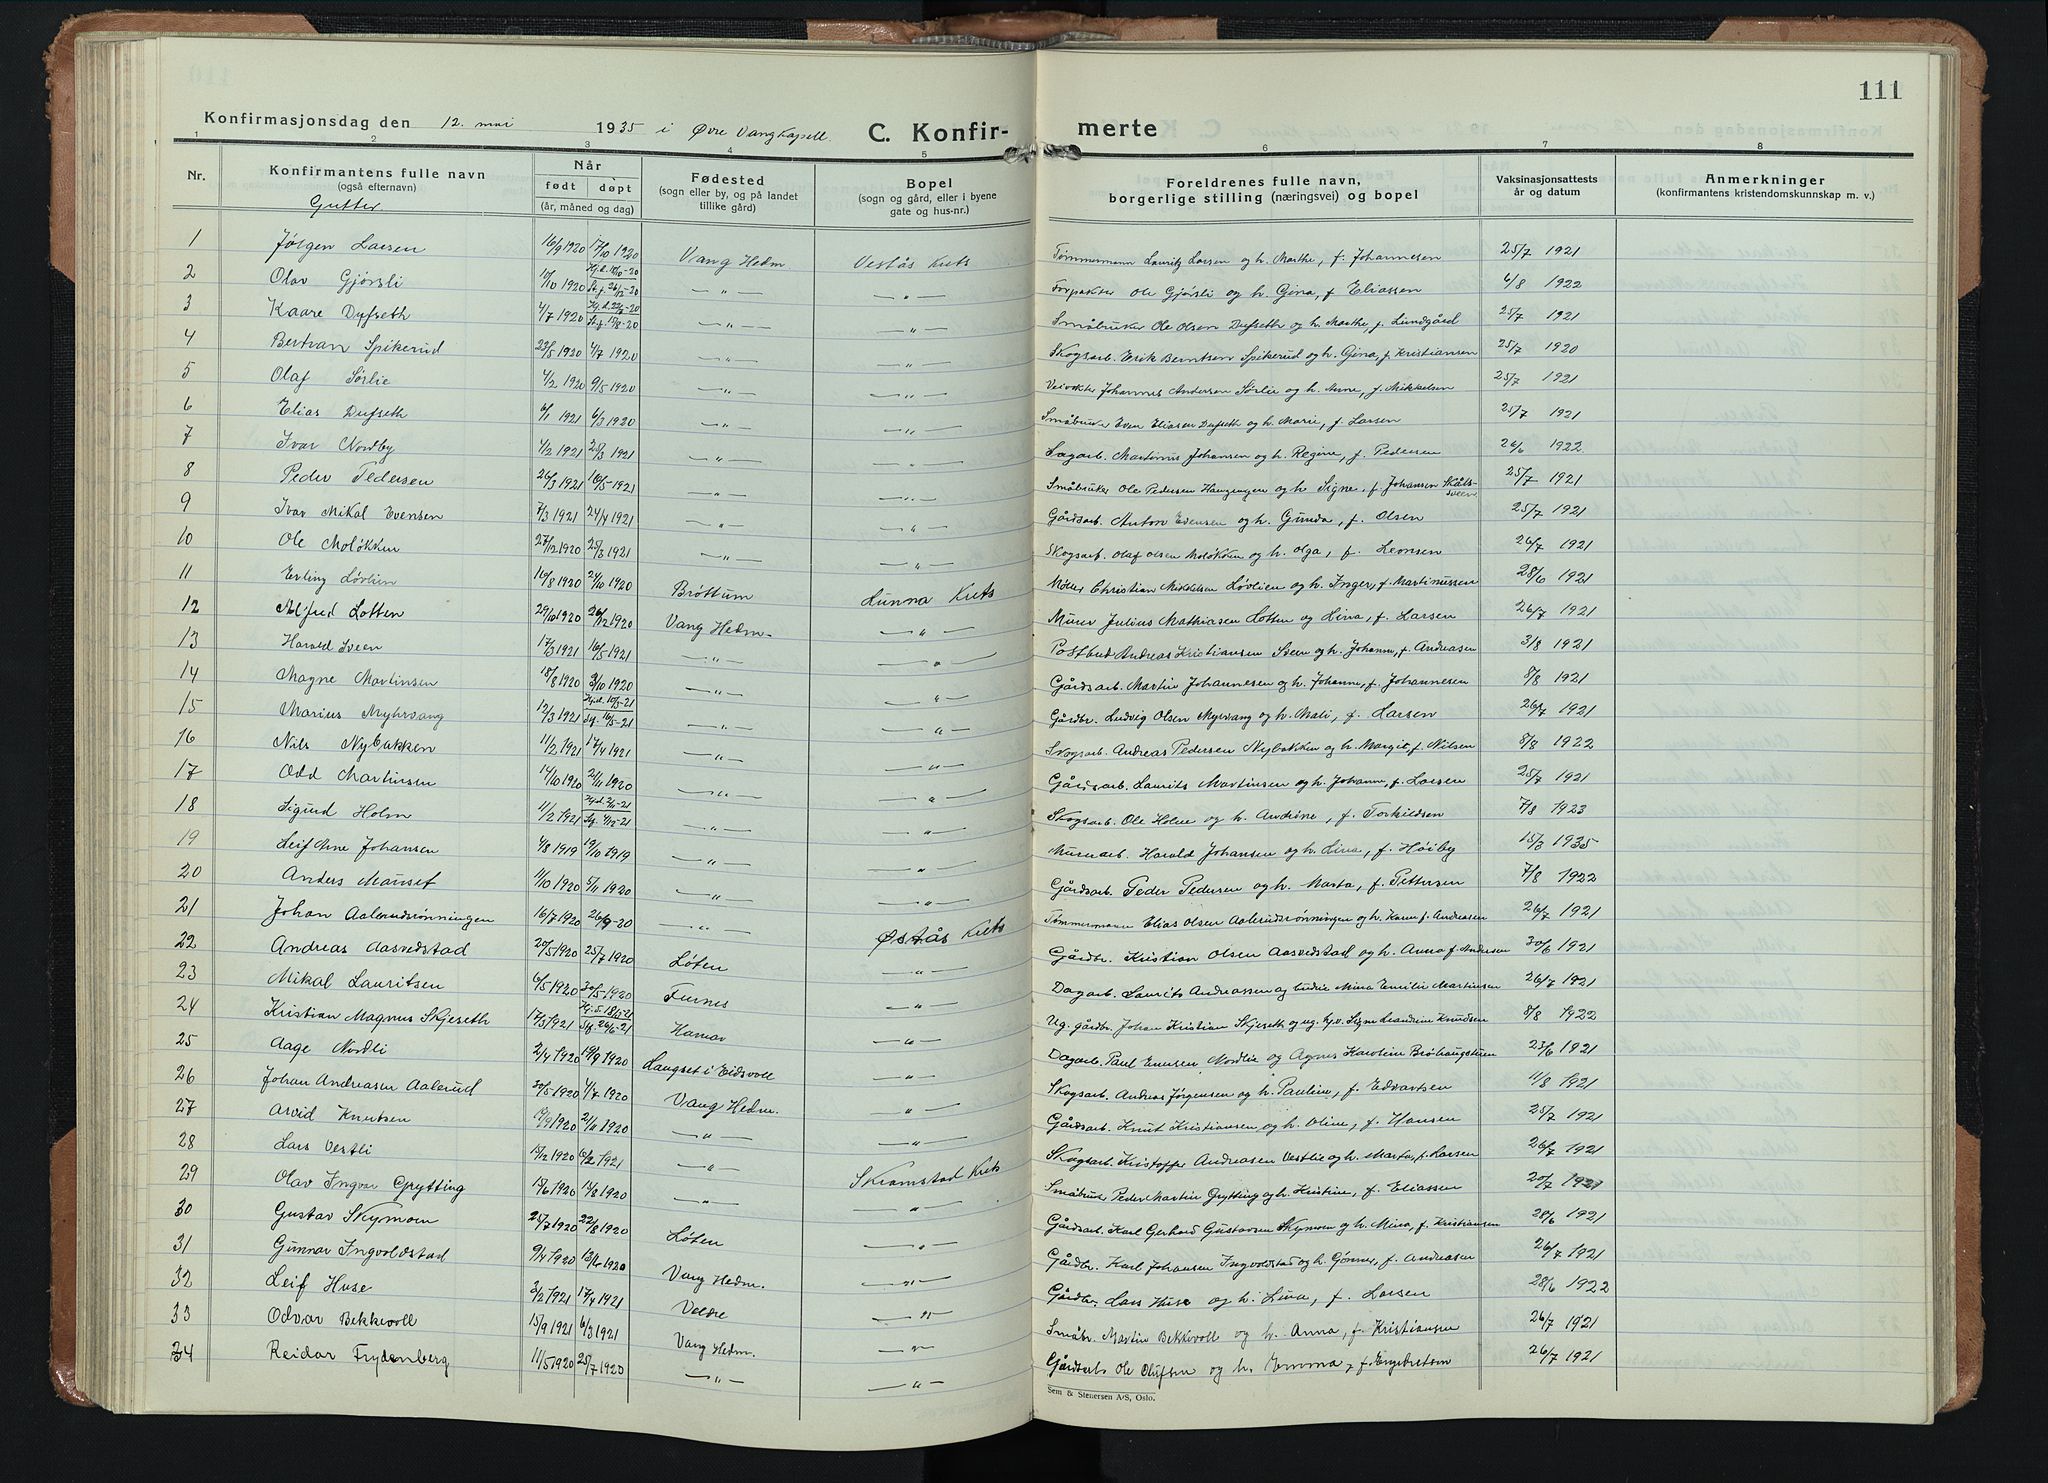 111
Konfirmasjonsdag den 12. mai 1935 i Øvre Vang Kapell. C. Konfirmerte
1 2 3 4 5 6 7 8
Nr. Konfirmantens fulle navn (også efternavn) Gutter. Når født døpt (år, måned og dag) Fødested (sogn eller by, og på landet tillike gård) Bopel (sogn og gård, eller i byene gate og hus-nr.) Foreldrenes fulle navn, borgerlige stilling (næringsvei) og bopel Vaksinasjonsattests år og datum Anmerkninger (konfirmantens kristendomskunnskap m. v.)
1 Jørgen Larsen 16/9 1920 17/10 1920 Vang Hedm. Vestås Krets Tømmermann Lauritz Larsen og h. Marthe, f. Johannesen 25/7 1921
2 Olav Gjørsli 10/10 1920 Hj.d. 10-20 St.j. 26/12-20 —"— —"— Forpakter Ole Gjørsli og h. Gina, f. Eliassen 6/8 1922
3 Kaare Dufseth 4/7 1920 —"— —"— Småbruker Ole Olsen Dufseth og h. Marthe, f. Lundgård 25/7 1921
4 Bertran Spikerud 23/5 1920 4/7 1920 —"— —"— Skogsarb. Erik Berntsen Spikerud og h. Gina, f. Kristiansen 25/7 1920
5 Olaf Sørlie 4/2 1920 9/5 1920 —"— —"— Veivokter Johannes Andersen Sørlie og h. Anne, f. Mikkelsen 25/7 1921
6 Elias Dufseth 6/1 1921 6/3 1920 —"— —"— Småbruker Even Eliasen Dufseth og h. Marie, f. Larsen 25/7 1921
7 Ivar Nordby 4/2 1921 28/3 1921 —"— —"— Sagarb. Martinus Johansen og h. Regine, f. Pedersen 26/6 1922
8 Peder Pedersen 26/3 1921 16/5 1921 —"— —"— Småbruker Ole Pedersen Haugengen og h. Signe, f. Johansen 25/7 1921
9 Ivar Mikal Evensen 7/3 1921 24/4 1921 —"— —"— Gårdsarb. Anton Evensen og h. Gunda, f. Olsen 25/7 1921
10 Ole Moløkken 27/12 1920 28/3 1921 —"— —"— Skogsarb. Olaf Olsen Moløkken og h. Olga, f. Leonsen 26/7 1921
11 Erling Løvlien 16/8 1920 24/10 1920 Brøttum Lunna Krets Møller Christian Mikkelsen Løvlien og h. Inger, f. Martinussen 28/6 1921
12 Alfred Lotten 29/10 1920 26/12 1920 Vang Hedm. —"— Murer Julius Mathiasen Lotten og Lina, f. Larsen 26/7 1921
13 Harald Sveen 17/3 1921 16/5 1921 —"— —"— Postbud Andreas Kristiansen Sveen og h. Johanne, f. Andreasen 3/8 1921
14 Magne Martinsen 18/8 1920 3/10 1920 —"— —"— Gårdsarb. Martin Johannesen og h. Johanne, f. Johannesen 8/8 1921
15 Marius Myhrvang 12/3 1921 —"— —"— Gårdbr. Ludvig Olsen Myrvang og h. Mali, f. Larsen 26/7 1921
16 Nils Nybakken 11/2 1921 17/4 1921 —"— —"— Skogsarb. Andreas Pedersen Nybakken og h. Margit, f. Nilsen 8/8 1922
17 Odd Martinsen 14/10 1920 21/11 1920 —"— —"— Gårdsarb. Laurits Martinsen og h. Johanne, f. Larsen 25/7 1921
18 Sigurd Holm 11/2 1921 —"— —"— Skogsarb. Ole Holm og h. Andrine, f. Torkildsen 7/8 1923
19 Leif Arne Johansen 4/8 1919 19/10 1919 —"— —"— Murearb. Harald Johansen og h. Lina, f. Høiby 15/3 1935
20 Anders Mauset 11/10 1920 5/11 1920 —"— —"— Gårdsarb. Peder Pedersen og h. Marta, f. Pettersen 7/8 1922
21 Johan Aalerudsrønningen 16/7 1920 26/9-20 —"— Østås Krets Tømmermann Elias Olsen Aalerudsrønningen og h. Karen f. Andreasen 26/7 1921
22 Andreas Aasvedstad 20/5 1920 25/7 1920 Løten —"— Gårdbr. Kristian Olsen Aasvedstad og h. Anna f. Andersen 30/6 1921
23 Mikal Lauritsen 6/5 1920 30/5 1920 Furnes —"— Dagarb. Laurits Andreassen og Mina Emilie Martinsen 26/7 1921
24 Kristian Magnus Skjeseth 17/3 1921 Hamar —"— Ug. gårdbr. Johan Kristian Skjeseth og ug. Signe Leandrine Knudsen 8/8 1922
25 Aage Nordli 2/4 1920 19/9 1920 Haugset i Eidsvoll —"— Dagarb. Paul Evensen Nordlie og Agnes Karoline Brøhaugstuen 23/6 1921
26 Johan Andreasen Aalerud 30/5 1920 4/7 1920 Vang Hedm. —"— Skogsarb. Andreas Jørgensen og h. Pauline, f. Edvartsen 11/8 1921
27 Arvid Knutsen 19/9 1920 21/11 1920 —"— —"— Gårdsarb. Knut Kristiansen og h. Oline, f. Hansen 25/7 1921
28 Lars Vestli 15/12 1920 6/2 1921 —"— Skramstad Krets Skogsarb. Kristoffer Andreasen Vestlie og h. Marta, f. Larsen 26/7 1921
29 Olav Ingvar Grytting 15/6 1920 15/8 1920 —"— —"— Småbruker Peder Martin Grytting og h. Kristine, f. Eliassen 20/7 1921
30 Gustav Skymoen 25/7 1920 22/8 1920 Løten —"— Gårdsarb. Karl Gerhard Gustavsen Skymoen og h. Mina, f. Kristiansen 28/6 1921
31 Gunnar Ingvoldstad 9/4 1920 13/6 1920 Vang Hedm. —"— Gårdbr. Karl Johansen Ingvoldstad og h. Gønner, f. Andreasen 26/7 1921
32 Leif Huse 3/2 1921 17/4 1921 Veldre —"— Gårdbr. Lars Huse og h. Lina, f. Larsen 28/6 1922
33 Odvar Bekkevoll 15/9 1921 6/3 1921 Vang Hedm. —"— Småbr. Martin Bekkevoll og h. Anna, f. Kristiansen 26/7 1921
34 Reidar Frydenberg 11/5 1920 25/7 1920 —"— —"— Gårdsarb. Ole Olufsen og h. Emma, f. Engebretsen 26/7 1921
Sem & Stenersen A/S, Oslo.